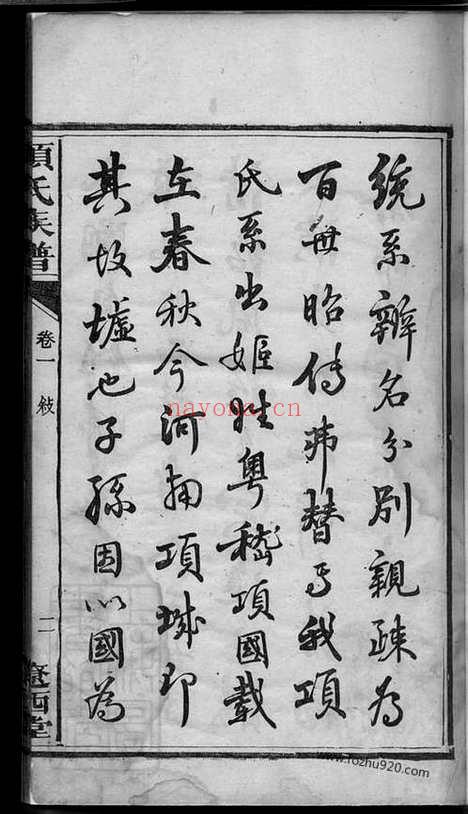 統系辨名分別親疎為
百世昭傳弗替焉我項
氏系出姬姓粵稽項國載
在春秋今河南項城即
其故墟也子孫因以國為
項氏族譜
卷一 敘
二
遼西堂
nayona.cn
www.fozhu920.com